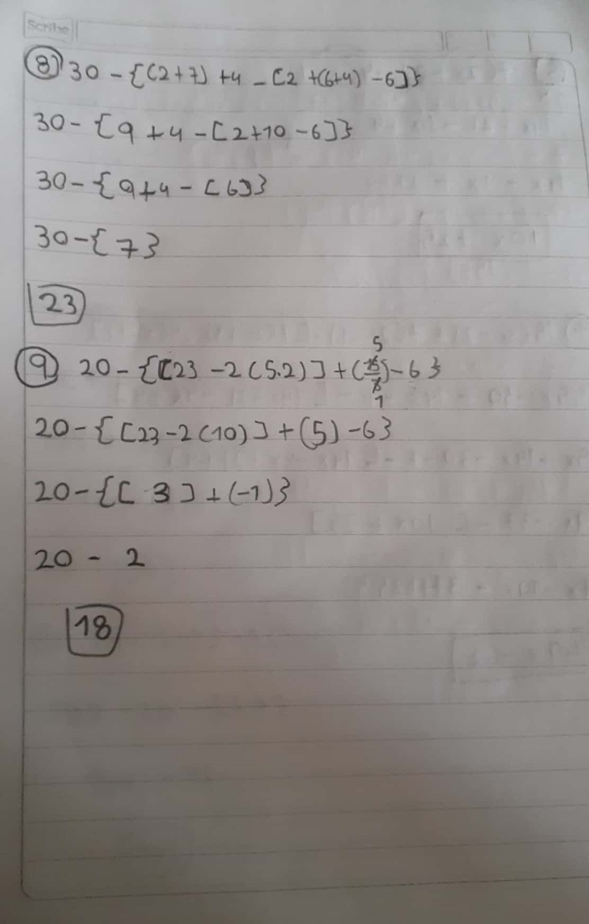 Scribe
⑧ 30 - {(2+7) +4 - [2 +(6+4) -6]}
30 - {9 +4 - [2+10 -6]}
30 - {9+4 - [6]}
30 - {7}
23
⑨ 20 - {[23 - 2(5.2)] + ( ) - 6}
5
1
20 - {[23 - 2(10)] + (5) - 6}
20 - {[ 3] + (-1)}
20 - 2
18